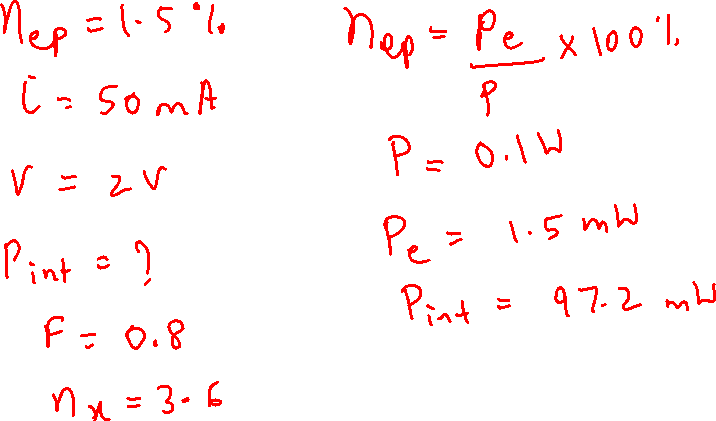 ηep = 1.5 %
i = 50 mA
V = 2 V
Pint = ?
F = 0.8
nx = 3.6
ηep = Pe/P x 100 %
P = 0.1 W
Pe = 1.5 mW
Pint = 97.2 mW